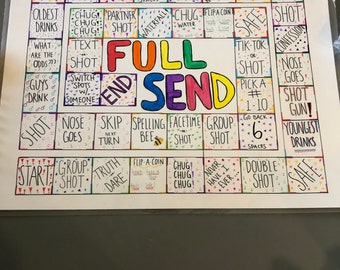 OLDEST DRINKS
CHUG! CHUG! CHUG!
PARTNER SHOT
WATERFALL!
CHUG WATER
FLIP A COIN
SAFE
SHOT
WHAT ARE THE ODDS???
TEXT OR SHOT
FULL
SEND
TIK-TOK OR SHOT
NOSE GOES
CONFESSION
GUYS DRINK
SWITCH SPOTS w/ SOMEONE
END
PICK A # 1-10
SHOT GUN!
SHOT
NOSE GOES
SKIP NEXT TURN
SPELLING BEE
FACETIME OR SHOT
GROUP SHOT
GO BACK 6 SPACES
YOUNGEST DRINKS
START
GROUP SHOT
TRUTH OR DARE
FLIP-A-COIN
CHUG! CHUG! CHUG!
NEVER HAVE I EVER
DOUBLE SHOT
SAFE